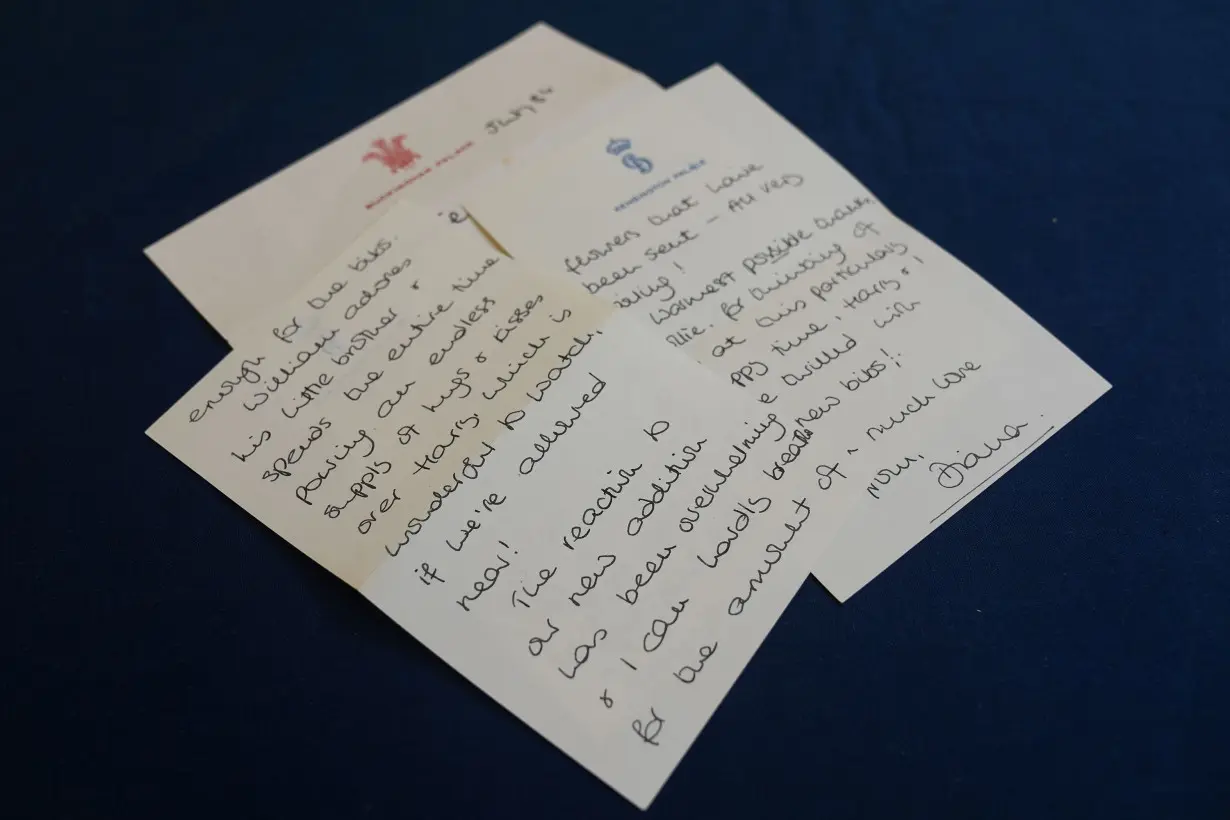 BUCKINGHAM PALACE
July 84
enough for the bibs.
William adores
his little brother &
spends the entire time
pouring an endless
supply of hugs & kisses
over Harry, which is
wonderful to watch,
if we're allowed
near!
The reaction to
our new addition
has been overwhelming
& I can hardly breathe
for the amount of
KENSINGTON PALACE
flowers that have
been sent - All very
Warmest possible thanks,
for thinking of
at this particularly
time, Harry & I
thrilled with
new bibs!
much love
from,
Diana.